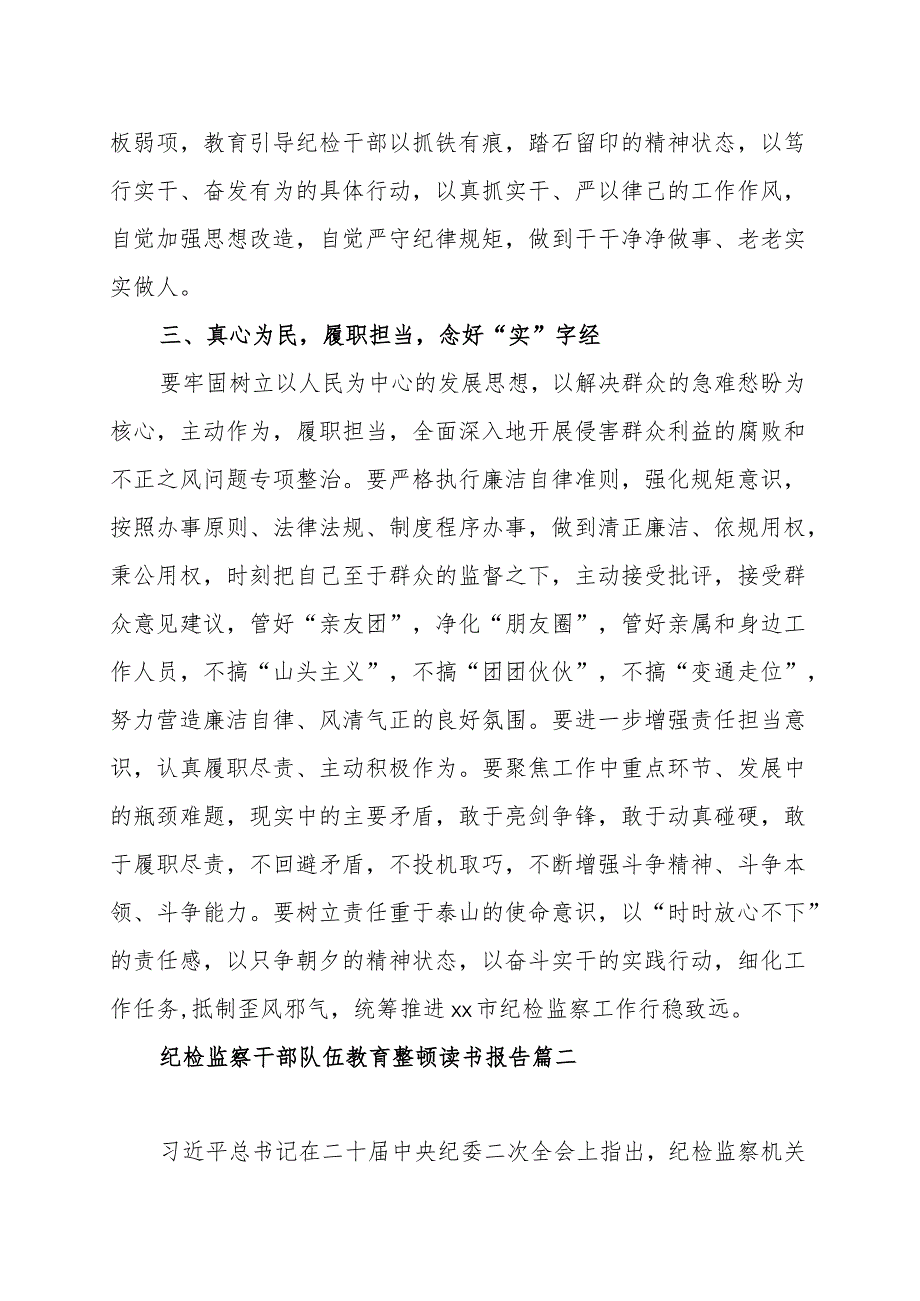 板弱项，教育引导纪检干部以抓铁有痕，踏石留印的精神状态，以笃
行实干、奋发有为的具体行动，以真抓实干、严以律己的工作作风，
自觉加强思想改造，自觉严守纪律规矩，做到干干净净做事、老老实
实做人。
三、真心为民，履职担当，念好“实”字经
要牢固树立以人民为中心的发展思想，以解决群众的急难愁盼为
核心，主动作为，履职担当，全面深入地开展侵害群众利益的腐败和
不正之风问题专项整治。要严格执行廉洁自律准则，强化规矩意识，
按照办事原则、法律法规、制度程序办事，做到清正廉洁、依规用权，
秉公用权，时刻把自己至于群众的监督之下，主动接受批评，接受群
众意见建议，管好“亲友团”，净化“朋友圈”，管好亲属和身边工
作人员，不搞“山头主义”，不搞“团团伙伙”，不搞“变通走位”，
努力营造廉洁自律、风清气正的良好氛围。要进一步增强责任担当意
识，认真履职尽责、主动积极作为。要聚焦工作中重点环节、发展中
的瓶颈难题，现实中的主要矛盾，敢于亮剑争锋，敢于动真碰硬，敢
于履职尽责，不回避矛盾，不投机取巧，不断增强斗争精神、斗争本
领、斗争能力。要树立责任重于泰山的使命意识，以“时时放心不下”
的责任感，以只争朝夕的精神状态，以奋斗实干的实践行动，细化工
作任务,抵制歪风邪气，统筹推进xx市纪检监察工作行稳致远。
纪检监察干部队伍教育整顿读书报告篇二
习近平总书记在二十届中央纪委二次全会上指出，纪检监察机关